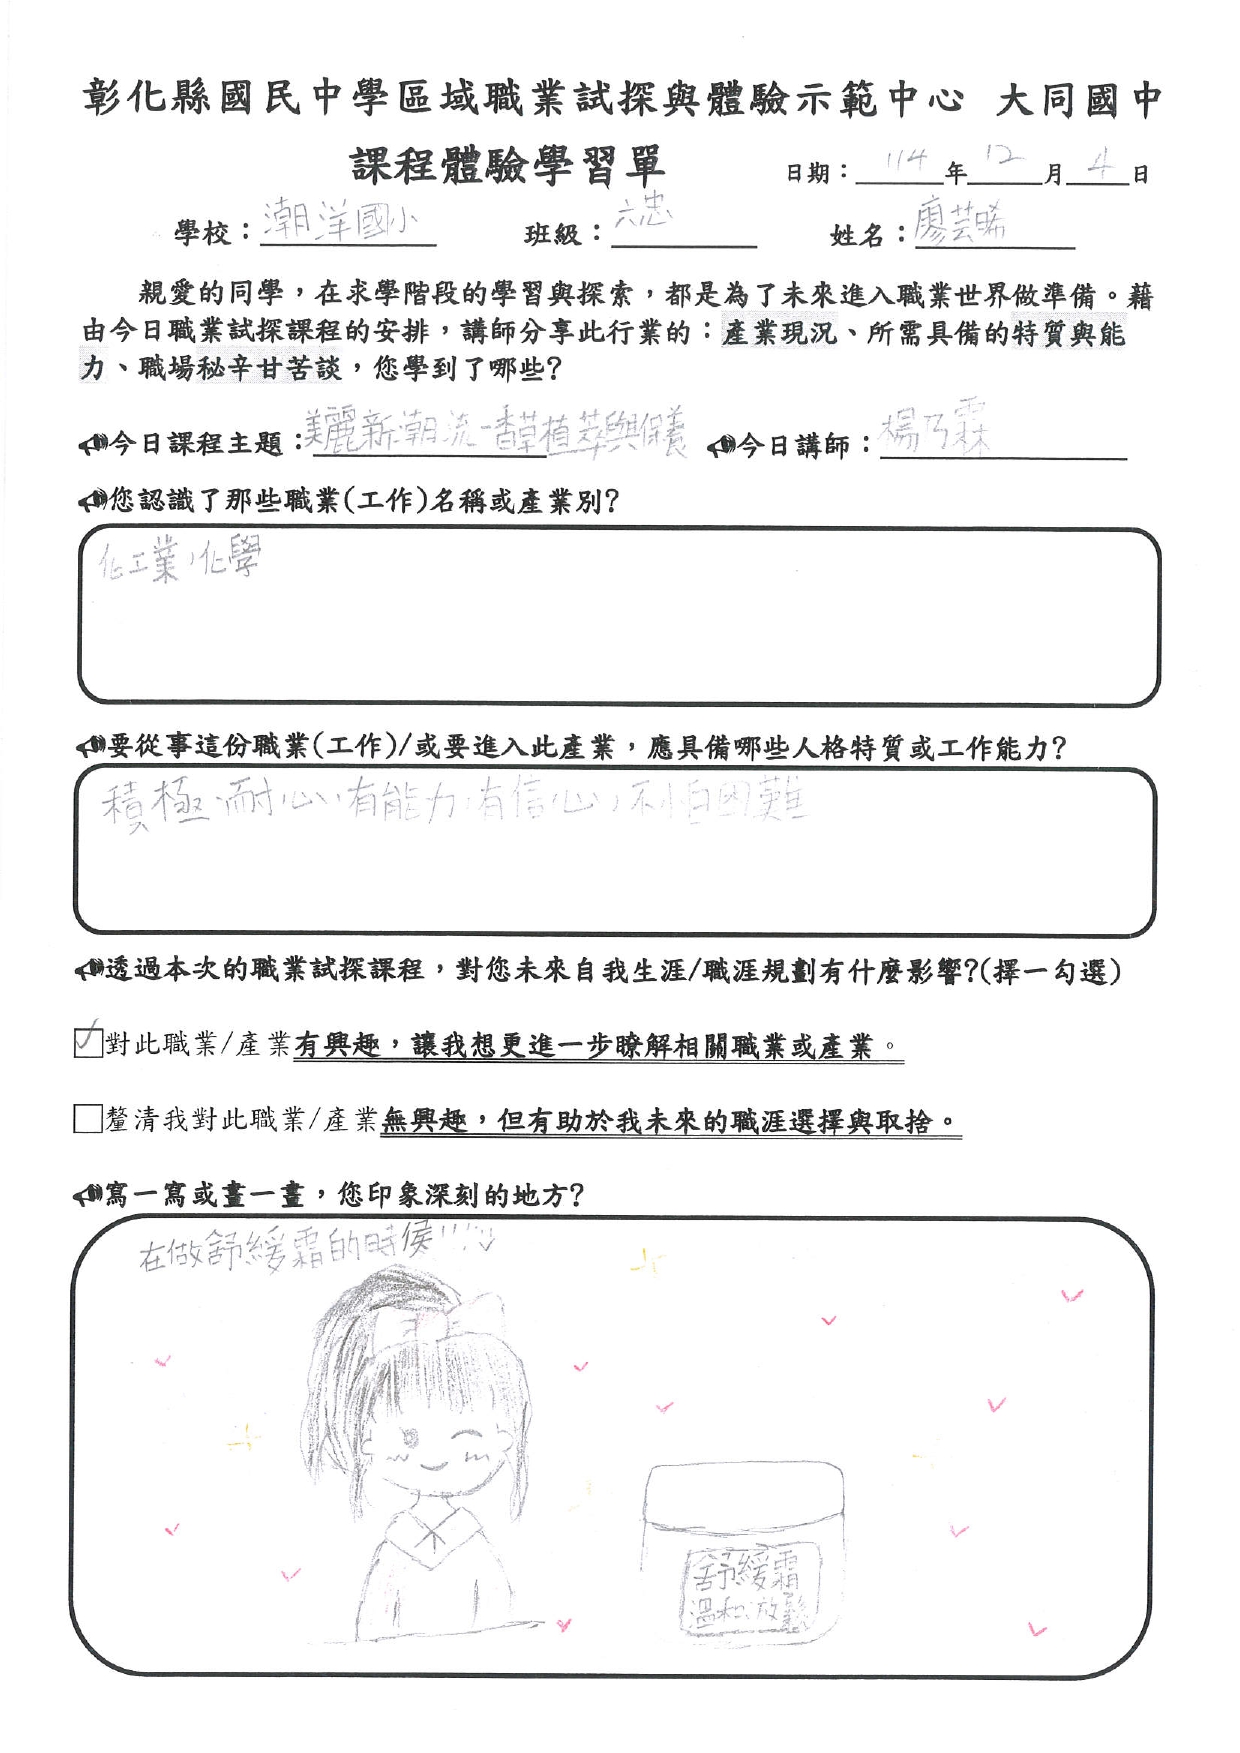 彰化縣國民中學區域職業試探與體驗示範中心 大同國中
課程體驗學習單
日期：114年12月4日
學校：潮洋國小 班級：六忠 姓名：廖芸晞
親愛的同學，在求學階段的學習與探索，都是為了未來進入職業世界做準備。藉
由今日職業試探課程的安排，講師分享此行業的：產業現況、所需具備的特質與能
力、職場秘辛甘苦談，您學到了哪些?
今日課程主題：美麗新潮流-香草植萃與保養 今日講師：楊乃霖
您認識了那些職業(工作)名稱或產業別?
化工業，化學
要從事這份職業(工作)/或要進入此產業，應具備哪些人格特質或工作能力?
積極、耐心，有能力，有信心，不怕困難
透過本次的職業試探課程，對您未來自我生涯/職涯規劃有什麼影響?(擇一勾選)
對此職業/產業有興趣，讓我想更進一步瞭解相關職業或產業。
釐清我對此職業/產業無興趣，但有助於我未來的職涯選擇與取捨。
寫一寫或畫一畫，您印象深刻的地方?
在做舒緩霜的時侯!!!
舒緩霜
溫和放鬆